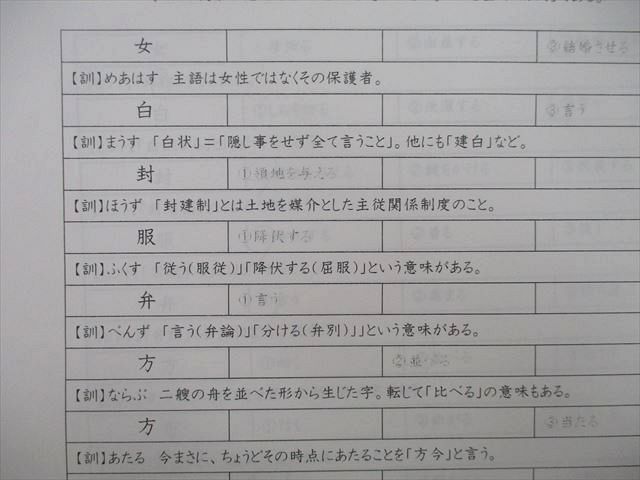 女 ③結婚させる
【訓】めあはす 主語は女性ではなくその保護者。
白 ③言う
【訓】まうす 「白状」＝「隠し事をせず全て言うこと」。他にも「建白」など。
封 ①領地を与える
【訓】ほうず 「封建制」とは土地を媒介とした主従関係制度のこと。
服 ①降伏する
【訓】ふくす 「従う(服従)」「降伏する(屈服)」という意味がある。
弁 ①言う
【訓】べんず 「言う(弁論)」「分ける(弁別)」」という意味がある。
方 ②並べる
【訓】ならぶ 二艘の舟を並べた形から生じた字。転じて「比べる」の意味もある。
方 ③当たる
【訓】あたる 今まさに、ちょうどその時点にあたることを「方今」と言う。